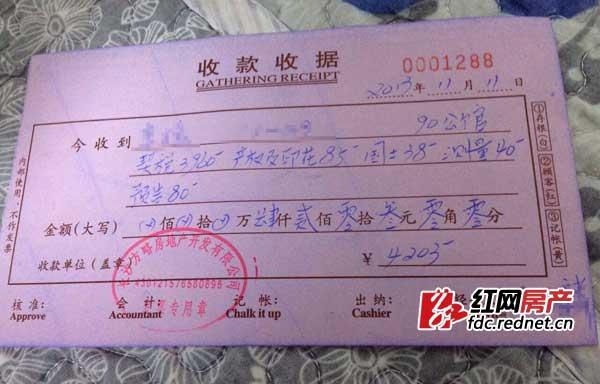 收款收据
GATHERING RECEIPT
0001288
2013年11月11日
今收到
90公官
契税3965 产权及印花85 国土38 测量40
预告80
金额(大写) 佰 拾 万肆仟贰佰零拾叁元零角零分
收款单位(盖章)
¥4203
长沙方略房地产开发有限公司
4301215765808​98
专用章
核准: 会计: 记帐: 出纳:
Approve Accountant Chalk it up Cashier
内部使用,不作发票
①存根(白) ②顾客(红) ③记帐(黄)
红网房产
fdc.rednet.cn